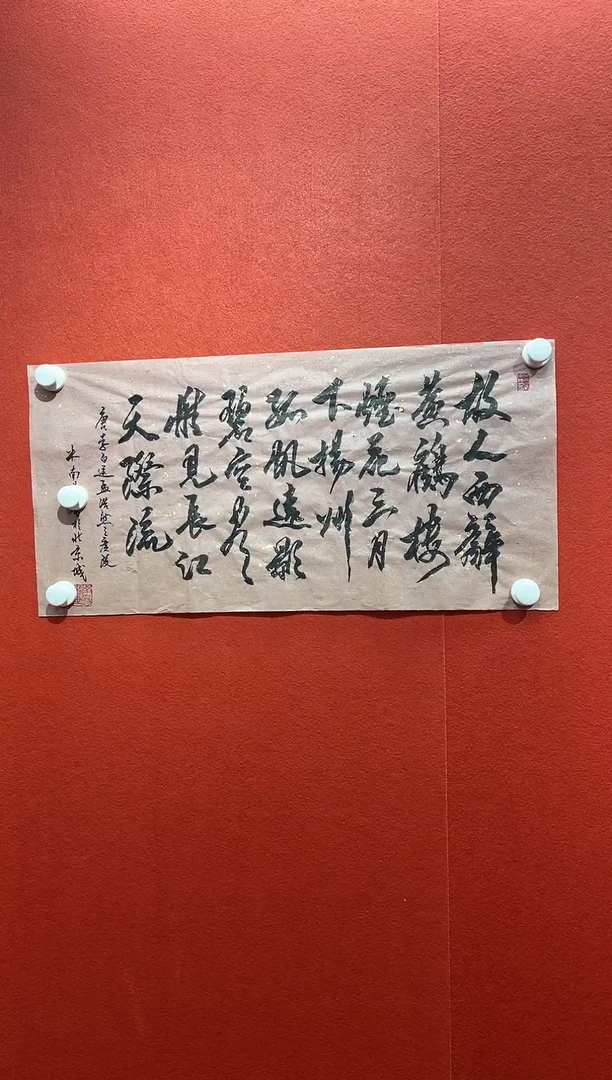 故人西辭
黃鶴樓
煙花三月
下揚州
孤帆遠影
碧空盡
唯見長江
天際流
唐李白送孟浩然之廣陵
於北京城